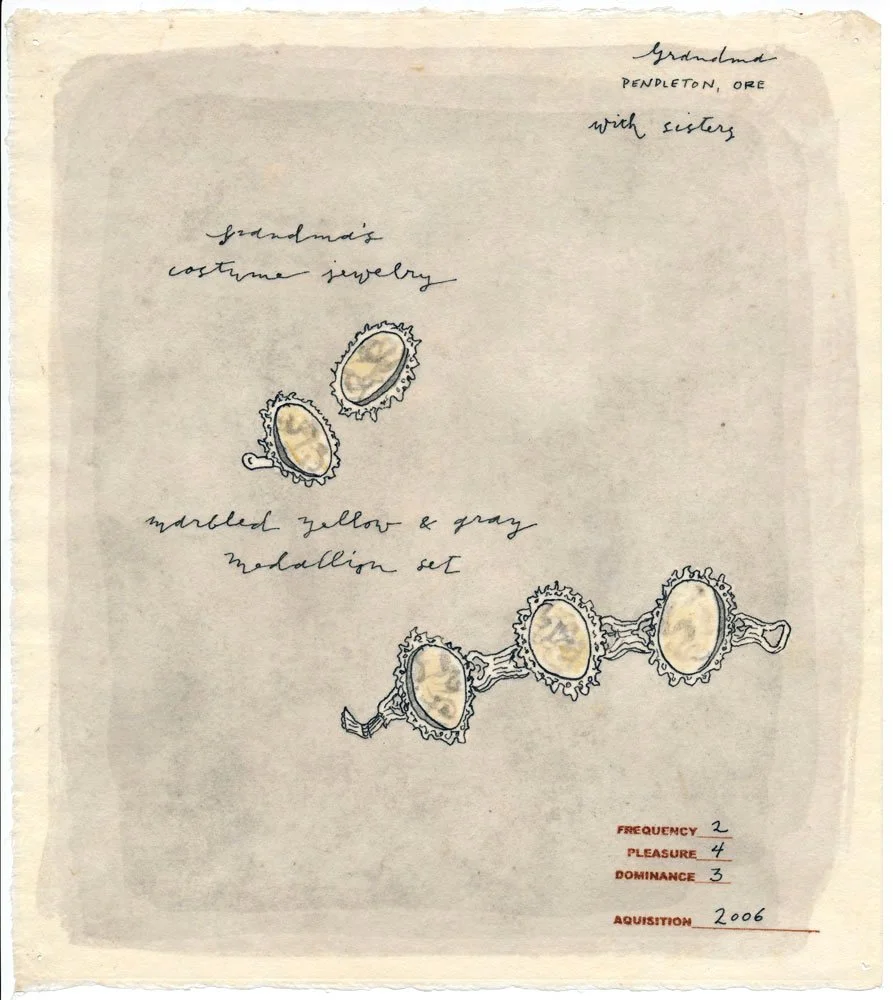 Grandma
PENDLETON, ORE
with sisters
grandma's
costume jewelry
marbled yellow & gray
medallion set
FREQUENCY 2
PLEASURE 4
DOMINANCE 3
AQUISITION 2006